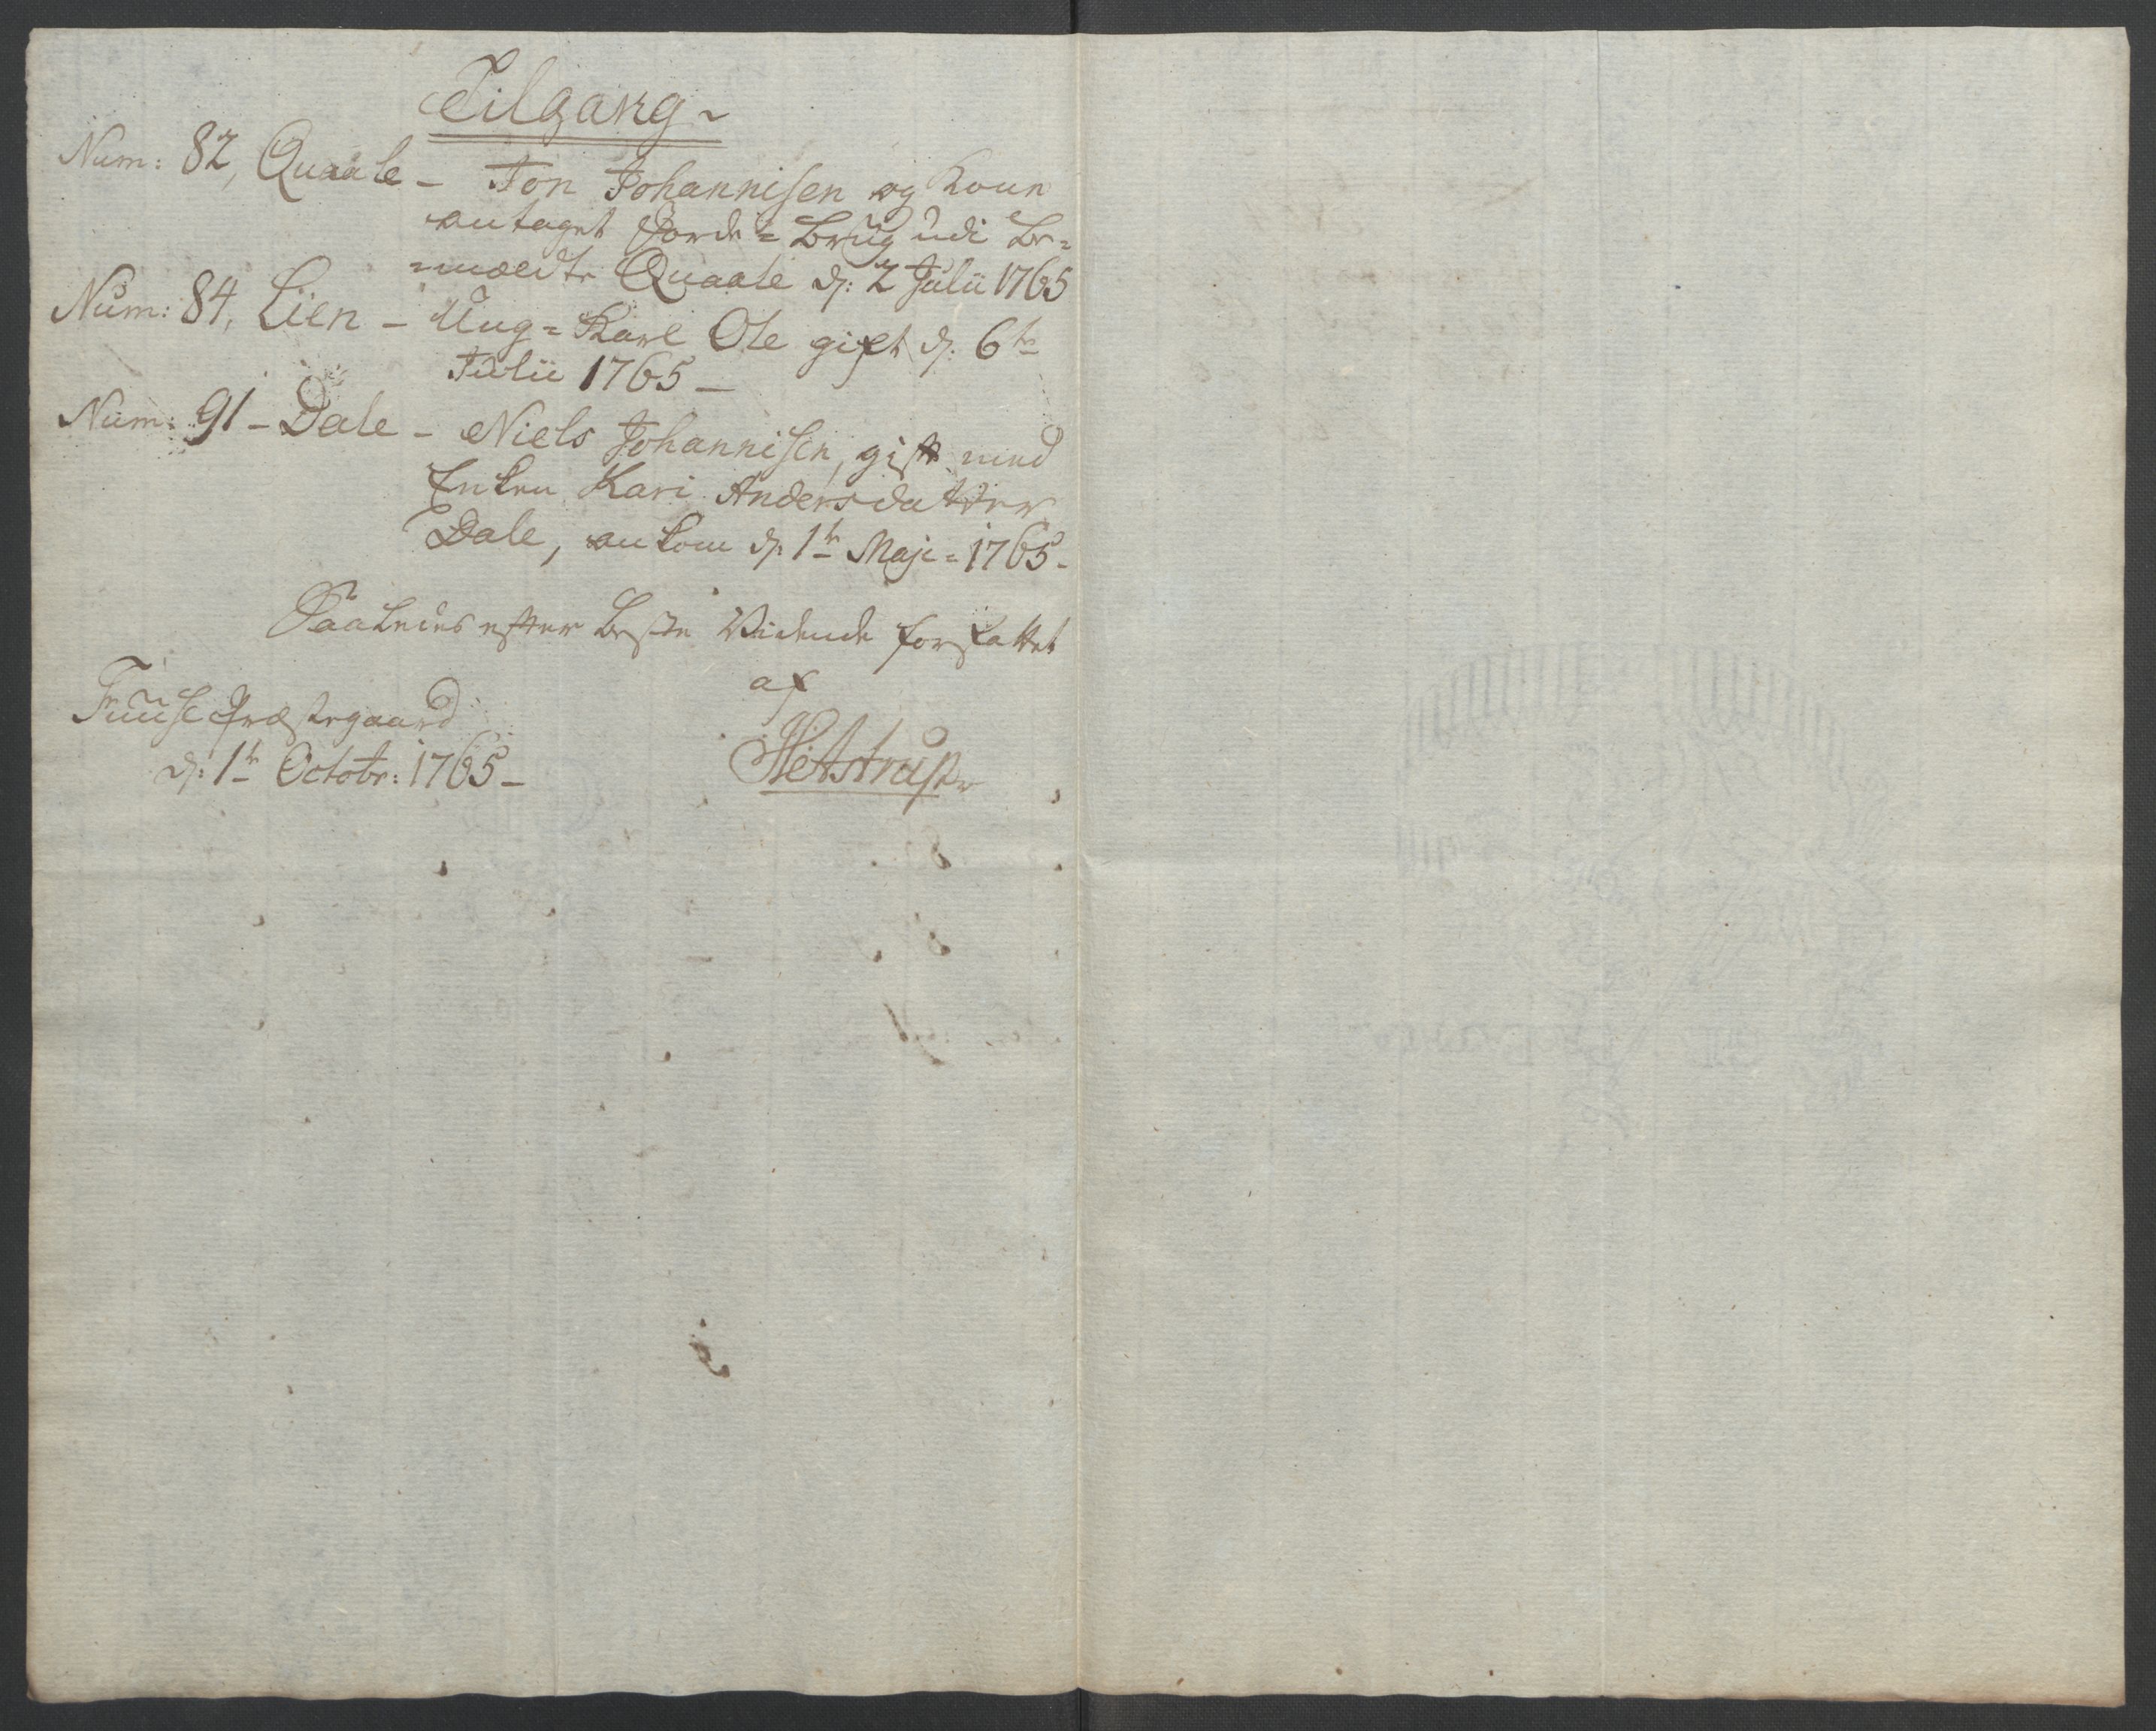 Tilgang
Num: 82, Quaale - Jon Johannisen og Konn
antaget Jorde=Brug udi be=
=mældte Quaale d: 2 Julii 1765
Num: 84, Lien - Ung=Karl Ole gift d: 6te
Julii 1765 -
Num: 91 - Dale - Niels Johannisen, gift med
Enken Kari Andersdatter
Dale, ankom d: 1te Maji = 1765 -
Saaledes efter beste Vidende forfattet
af
Fuuse Præstegaard
d: 1te Octobr: 1765 -